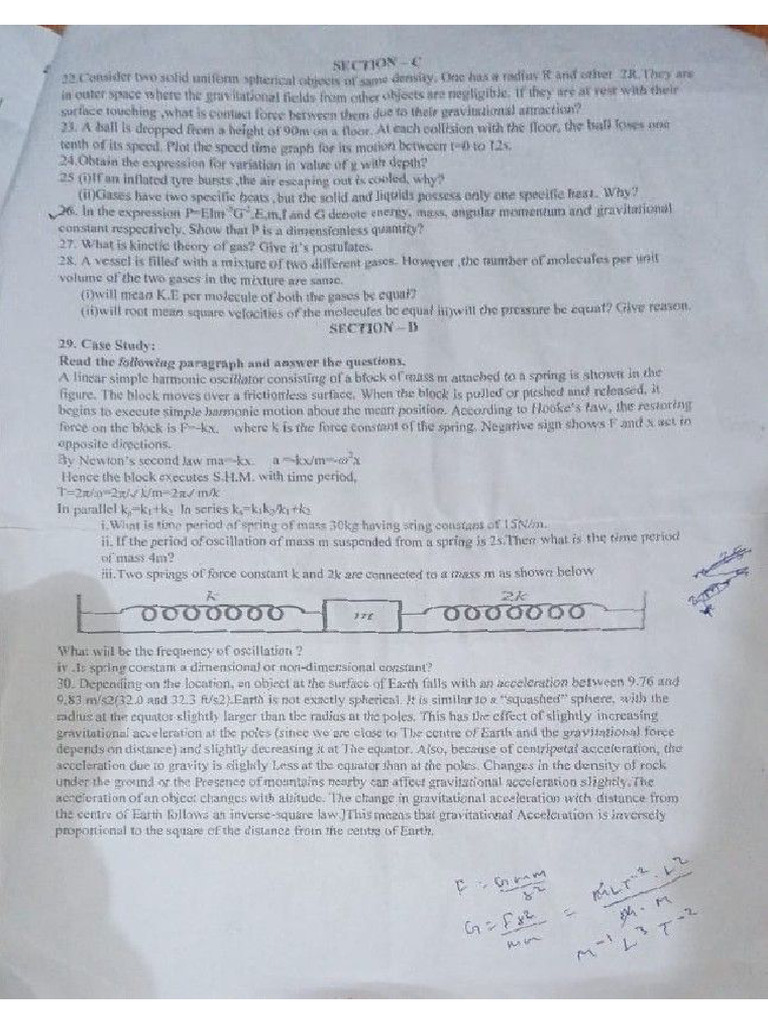 SECTION – C
22.Consider two solid uniform spherical objects of same density. One has a radius R and other 2R. They are
in outer space where the gravitational fields from other objects are negligible. If they are at rest with their
surface touching ,what is contact force between them due to their gravitational attraction?
23. A ball is dropped from a height of 90m on a floor. At each collision with the floor, the ball loses one
tenth of its speed. Plot the speed time graph for its motion between t=0 to 12s.
24.Obtain the expression for variation in value of g with depth?
25 (i)If an inflated tyre bursts ,the air escaping out is cooled, why?
(ii)Gases have two specific heats ,but the solid and liquids possess only one specific heat. Why?
26. In the expression P=Elm⁻⁵G⁻²,E,m,l and G denote energy, mass, angular momentum and gravitational
constant respectively. Show that P is a dimensionless quantity?
27. What is kinetic theory of gas? Give it's postulates.
28. A vessel is filled with a mixture of two different gases. However ,the number of molecules per unit
volume of the two gases in the mixture are same.
(i)will mean K.E per molecule of both the gases be equal?
(ii)will root mean square velocities of the molecules be equal iii)will the pressure be equal? Give reason.
SECTION – D
29. Case Study:
Read the following paragraph and answer the questions.
A linear simple harmonic oscillator consisting of a block of mass m attached to a spring is shown in the
figure. The block moves over a frictionless surface. When the block is pulled or pushed and released, it
begins to execute simple harmonic motion about the mean position. According to Hooke's law, the restoring
force on the block is F=-kx. where k is the force constant of the spring. Negative sign shows F and x act in
opposite directions.
By Newton's second law ma=-kx. a =-kx/m=-ω²x
Hence the block executes S.H.M. with time period,
T=2π/ω=2π/√ k/m=2π√ m/k
In parallel kₚ=k₁+k₂ In series kₛ=k₁k₂/k₁+k₂
i.What is time period of spring of mass 30kg having sring constant of 15N/m.
ii. If the period of oscillation of mass m suspended from a spring is 2s.Then what is the time period
of mass 4m?
iii.Two springs of force constant k and 2k are connected to a mass m as shown below
k m 2k
What will be the frequency of oscillation ?
iv .Is spring constant a dimensional or non-dimensional constant?
30. Depending on the location, an object at the surface of Earth falls with an acceleration between 9.76 and
9.83 m/s2(32.0 and 32.3 ft/s2).Earth is not exactly spherical. It is similar to a "squashed" sphere, with the
radius at the equator slightly larger than the radius at the poles. This has the effect of slightly increasing
gravitational acceleration at the poles (since we are close to The centre of Earth and the gravitational force
depends on distance) and slightly decreasing it at The equator. Also, because of centripetal acceleration, the
acceleration due to gravity is slighly Less at the equator than at the poles. Changes in the density of rock
under the ground or the Presence of mountains nearby can affect gravitational acceleration slightly.The
acceleration of an object changes with altitude. The change in gravitational acceleration with distance from
the centre of Earth follows an inverse-square law ]This means that gravitational Acceleration is inversely
proportional to the square of the distance from the centre of Earth.